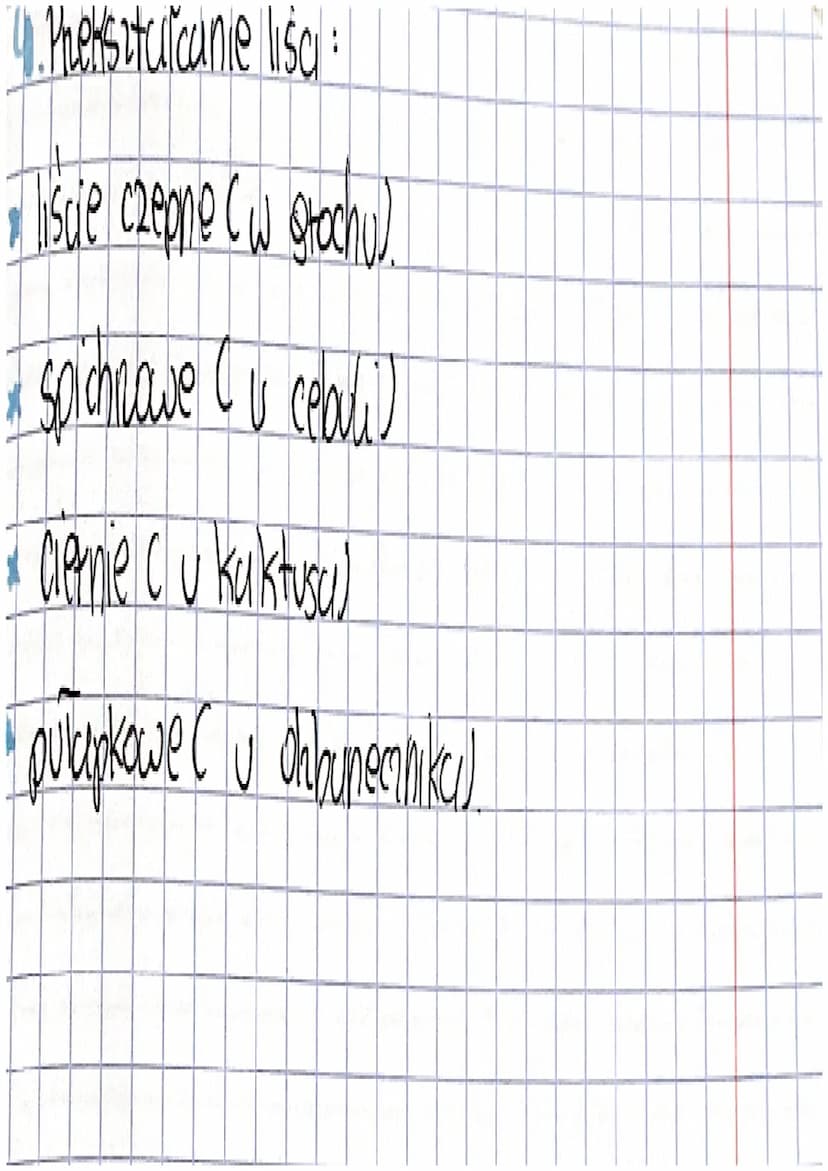 4. Przekształcanie liści:
* liście czepne (w grochu).
* spichrzowe (u cebuli)
* ciernie (u kaktusa)
* pułapkowe (u dzbanecznika).